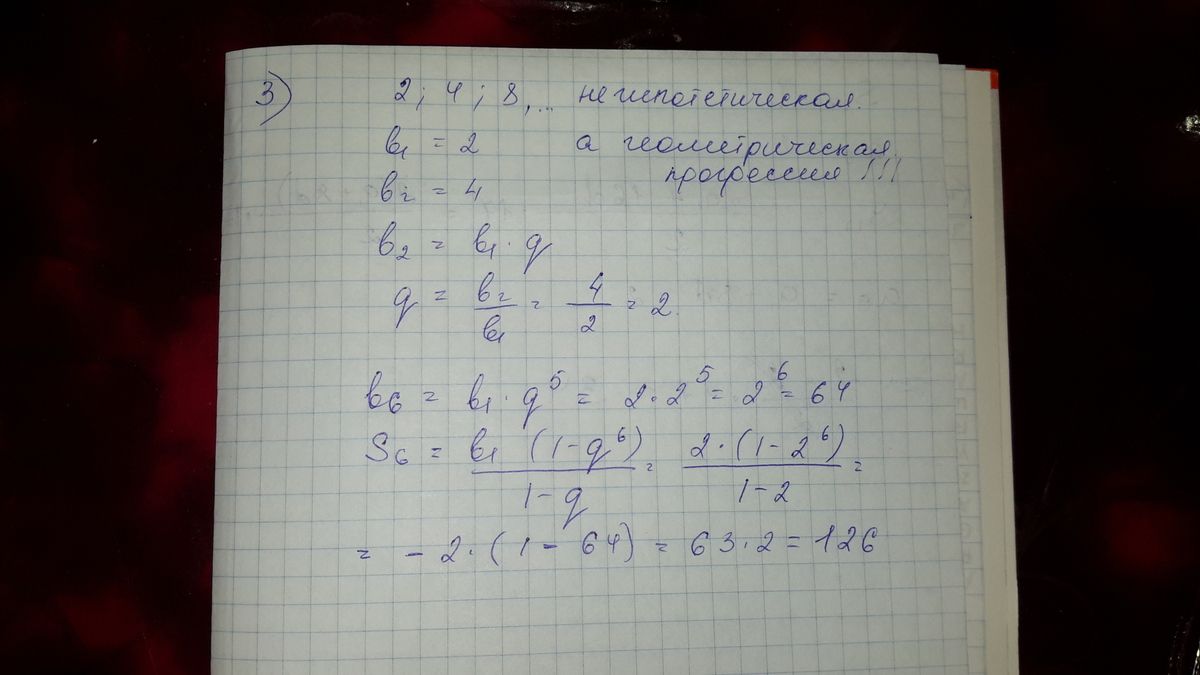 3) 2; 4; 8,... не гипотетическая.
b₁ = 2 а геометрическая
прогрессия !!!
b₂ = 4
b₂ = b₁ · q
q = b₂/b₁ = 4/2 = 2.
b₆ = b₁ · q⁵ = 2 · 2⁵ = 2⁶ = 64
S₆ = b₁ (1 - q⁶)/1 - q = 2 · (1 - 2⁶)/1 - 2 =
= - 2 · (1 - 64) = 63 · 2 = 126